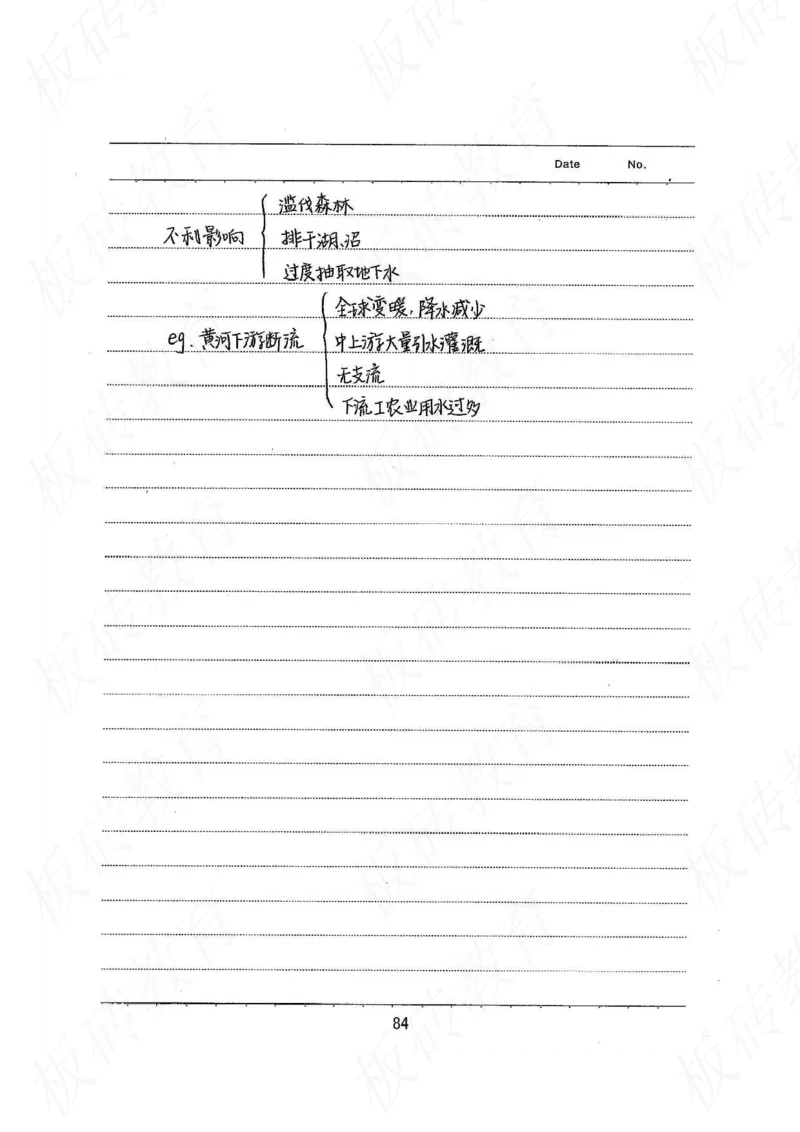 Date No.
滥伐森林
不利影响
排干湖、沼
过度抽取地下水
全球变暖，降水减少
eg. 黄河下游断流
中上游大量引水灌溉
无支流
下流工农业用水过多
84
板砖教育